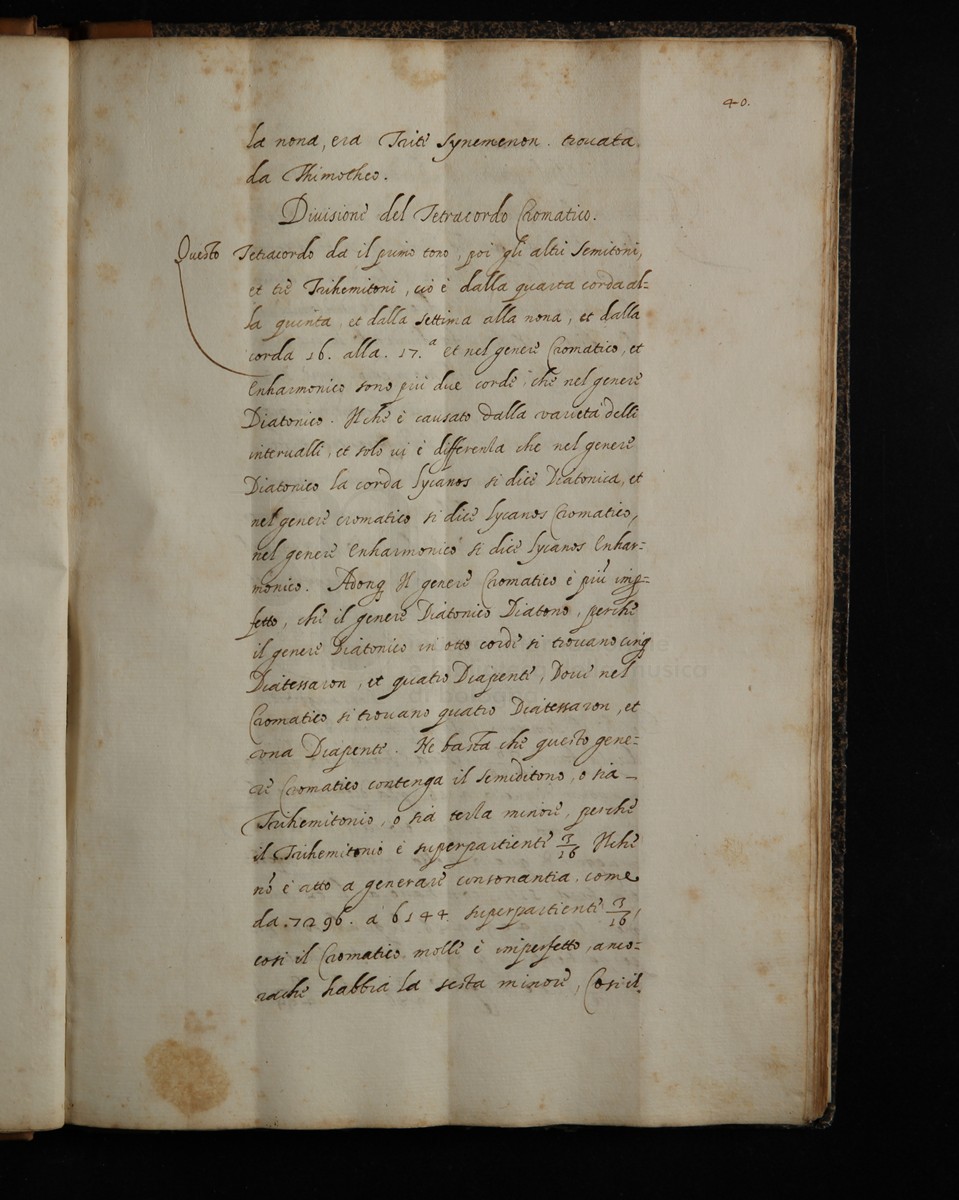 40.
la nona, era Trite Synemenon. trouata
da Thimotheo.
Diuisione del Tetracordo Cromatico.
Questo Tetracordo da il primo tono, poi gli altri Semitoni,
et tre Trihemitoni, cio è dalla quarta corda al=
la quinta, et dalla settima alla nona, et dalla
corda 16. alla. 17.ª et nel genere Cromatico, et
Enharmonico sono piu due corde, che nel genere
Diatonico. Il che è causato dalla varieta delli
interualli, et solo ui è differenza che nel genere
Diatonico la corda Lycanos si dice Diatonica, et
nel genere cromatico si dice Lycanos Cromatico,
nel genere Enharmonico si dice Lycanos Enhar=
monico. Adonq Il genere Cromatico è più imp=
fetto, che il genere Diatonico Diatono, perche
il genere Diatonico in otto corde si trouano cinq
Diatessaron, et quatro Diapente, Doue nel
Cromatico si trouano quatro Diatessaron, et
vna Diapente. Ne basta che questo gene=
re Cromatico contenga il semiditono, o sia
Trihemitonio, o sia terza minore, perche
il Trihemitonio è superpartiente 3/16 Il che
nõ è atto a generare consonantia. come
da. 7296. a 6144. superpartiente 3/16,
cosi il Cromatico molle è imperfetto, anco=
rache habbia la sesta minore, Cosi il
musica